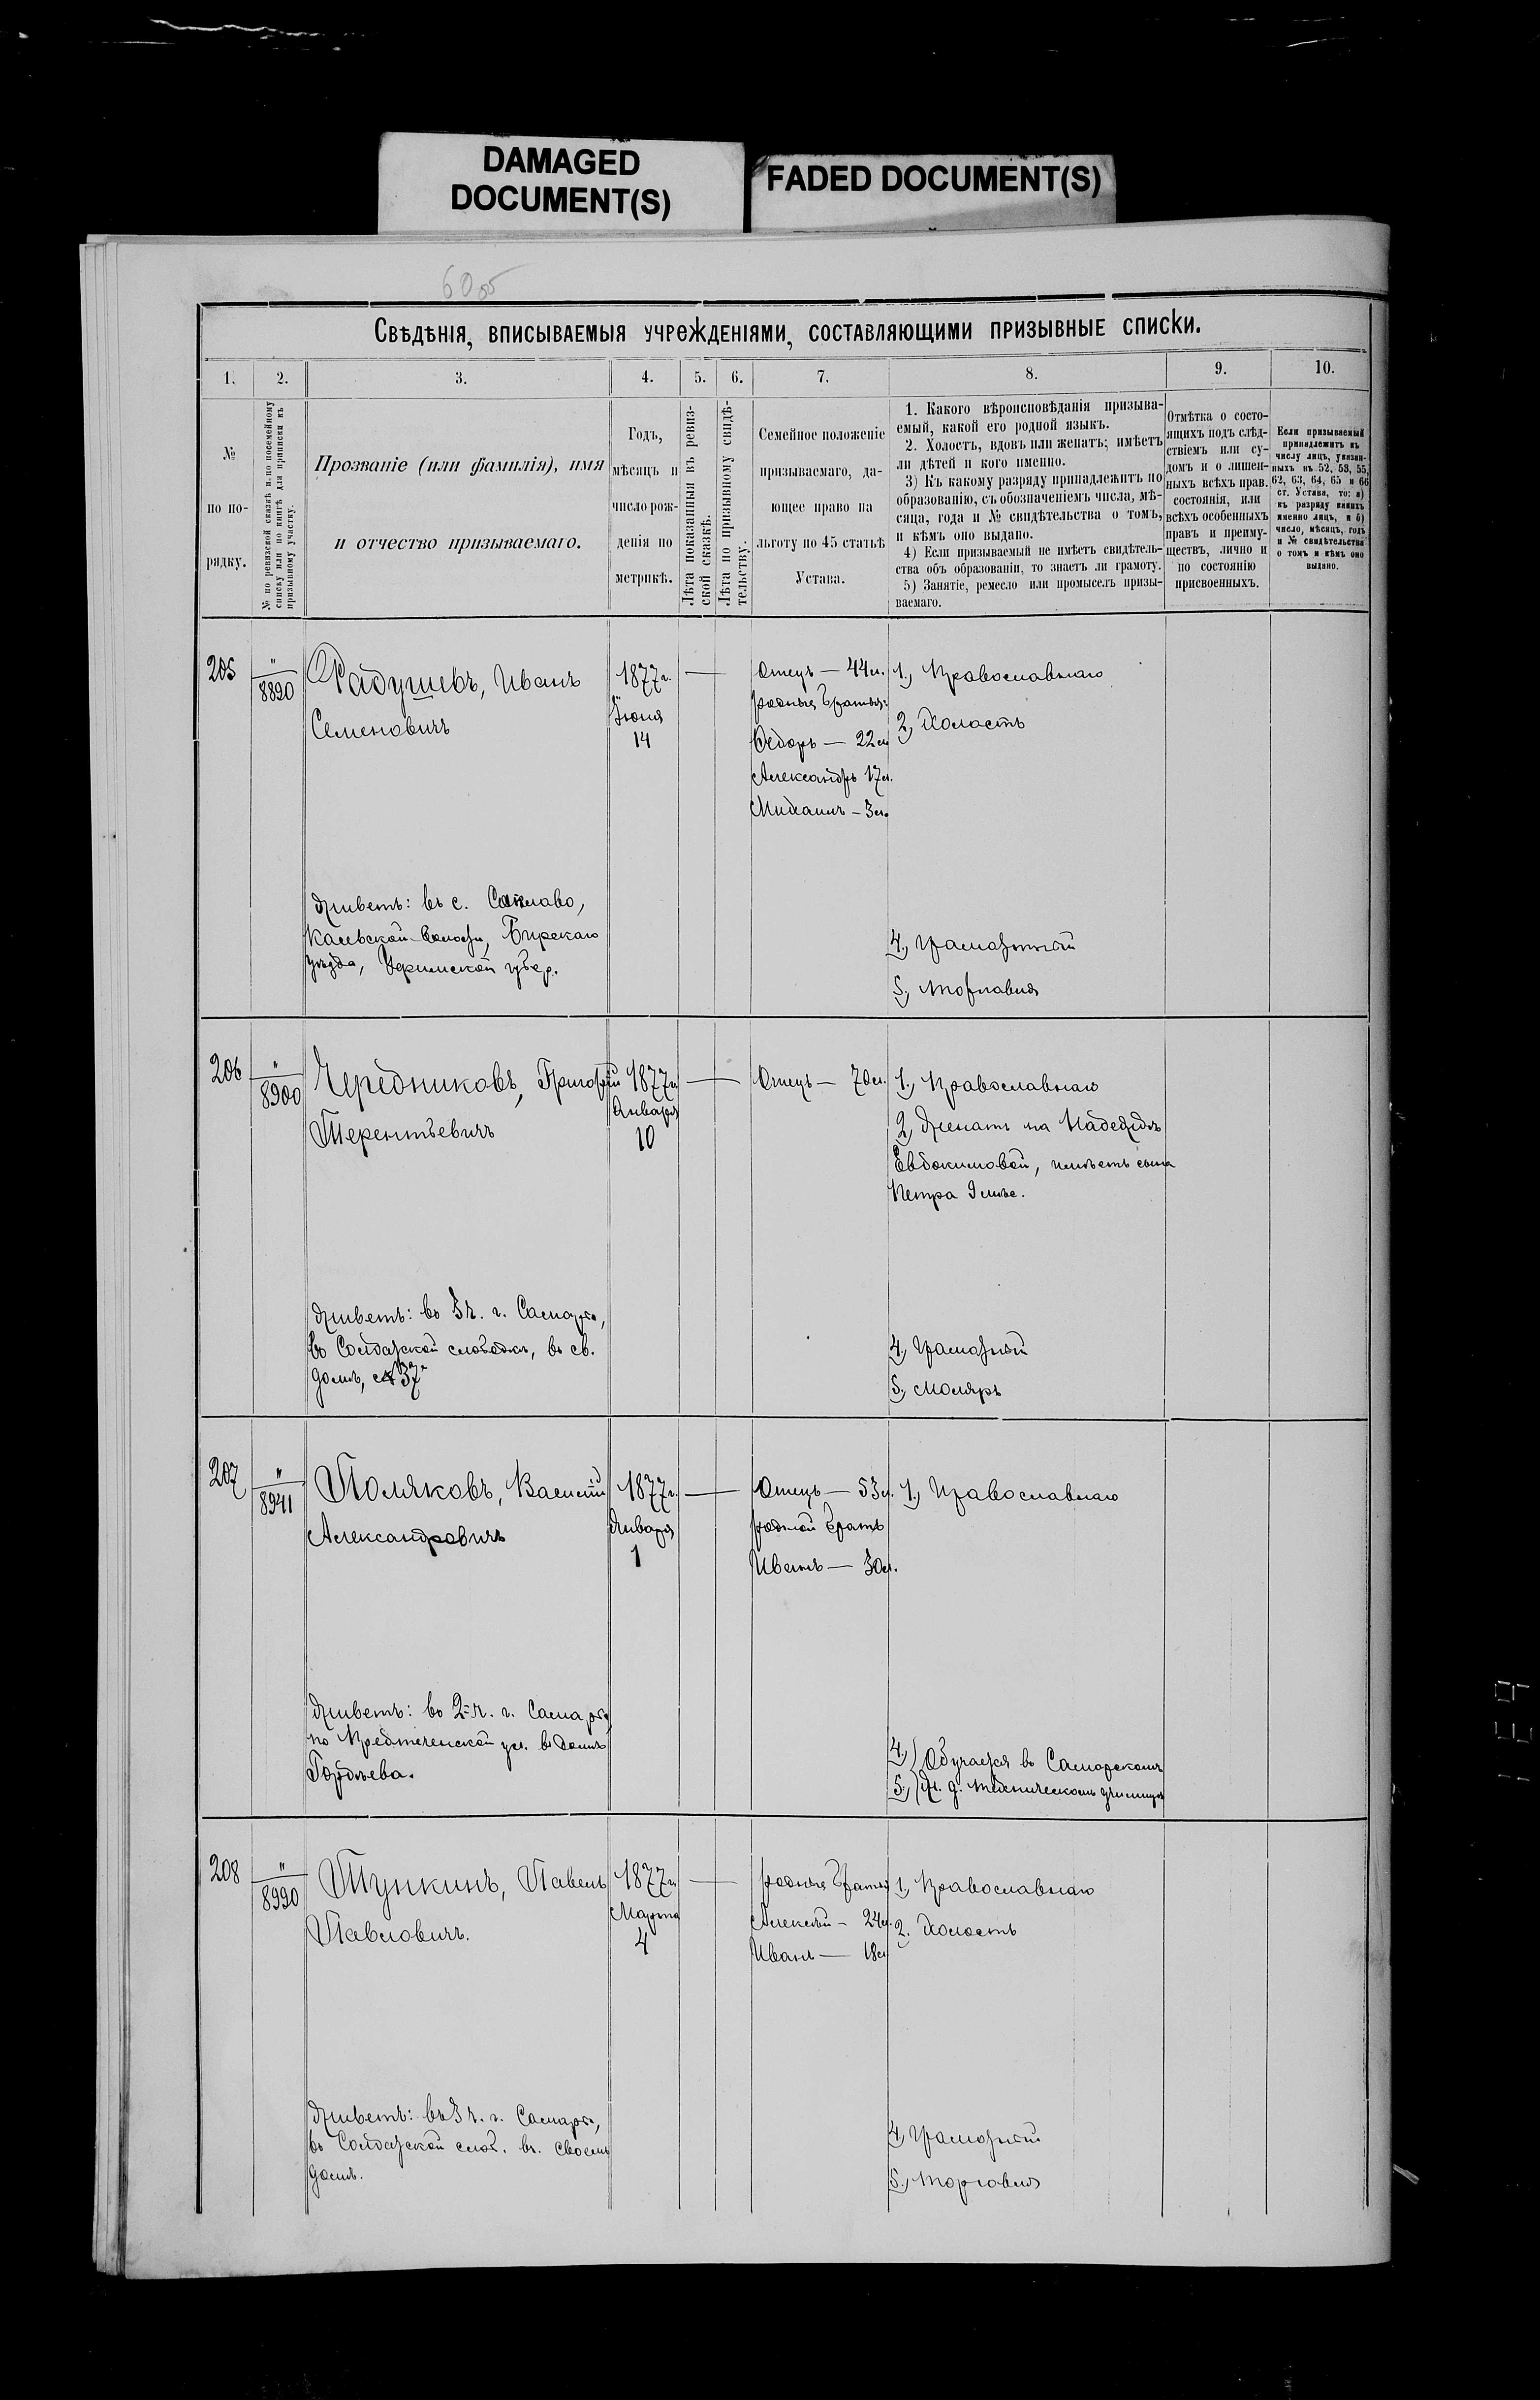 DAMAGED
DOCUMENT(S)
FADED DOCUMENT(S)
Свѣдѣнія, вписываемыя учрежденіями, составляющими призывные списки.
1. 2. 3. 4. 5. 6. 7. 8. 9. 10.
№
по по-
рядку.
№ по ревизской сказкѣ и по посемейному
списку или по книгѣ для приписки къ
призывному участку.
Прозваніе (или фамилія), имя
и отчество призываемаго.
Годъ,
мѣсяцъ и
число рож-
денія по
метрикѣ.
Лѣта показанныя въ ревиз-
ской сказкѣ.
Лѣта по призывному свидѣ-
тельству.
Семейное положеніе
призываемаго, да-
ющее право на
льготу по 45 статьѣ
Устава.
1. Какого вѣроисповѣданія призыва-
емый, какой его родной языкъ.
2. Холостъ, вдовъ или женатъ; имѣетъ
ли дѣтей и кого именно.
3) Къ какому разряду принадлежитъ по
образованію, съ обозначеніемъ числа, мѣ-
сяца, года и № свидѣтельства о томъ,
и кѣмъ оно выдано.
4) Если призываемый не имѣетъ свидѣтель-
ства объ образованіи, то знаетъ ли грамоту.
5) Занятіе, ремесло или промыселъ призы-
ваемаго.
Отмѣтка о состо-
ящихъ подъ слѣд-
ствіемъ или су-
домъ и о лишен-
ныхъ всѣхъ прав.
состоянія, или
всѣхъ особенныхъ
правъ и преиму-
ществъ, лично и
по состоянію
присвоенныхъ.
Если призываемый
принадлежитъ къ
числу лицъ, указан-
ныхъ въ 52, 53, 55,
62, 63, 64, 65 и 66
ст. Устава, то: а)
къ разряду какихъ
именно лицъ, и б)
число, мѣсяцъ, годъ
и № свидѣтельства
о томъ и кѣмъ оно
выдано.
205
"
8890
Радушевъ, Иванъ
Семеновичъ
Живетъ: въ с.
волости, Бирскаго
уѣзда, Уфимской губер.
1877 г.
Іюня
14
Отецъ — 44 л.
родныя братья:
Ѳедоръ — 22 л.
Александръ 17 л.
Михаилъ — 3 л.
1., Православнаго
2, Холостъ
4., Грамотный
5., Торговля
206
"
8900
Чередниковъ, Григорій
Терентьевичъ
Живетъ: въ 3 ч. г. Самары,
въ Солдатской слободкѣ, въ св.
домѣ, № 37
1877 г.
Января
10
Отецъ — 70 л.
1., Православнаго
2, Женатъ на Надеждѣ
Евдокимовой, имѣетъ сына
Петра
4., Грамотный
5., Маляръ
207
"
8941
Поляковъ, Василій
Александровичъ
Живетъ: во 2 ч. г. Самары
по Предтеченской ул. въ домѣ
Гордѣева.
1877 г.
Января
1
Отецъ — 53 л.
родной братъ
Иванъ — 30 л.
1., Православнаго
4., Обучается въ Самарскомъ
5., ж. д. техническомъ училищѣ
208
"
8990
Тупкинъ, Павелъ
Павловичъ.
Живетъ: въ 3 ч. г. Самары,
въ Солдатской слоб. въ своемъ
домѣ.
1877 г.
Марта
4
родные братья
Алексѣй — 24 л.
Иванъ — 18 л.
1, Православнаго
2. Холостъ
4, Грамотный
5., Торговля